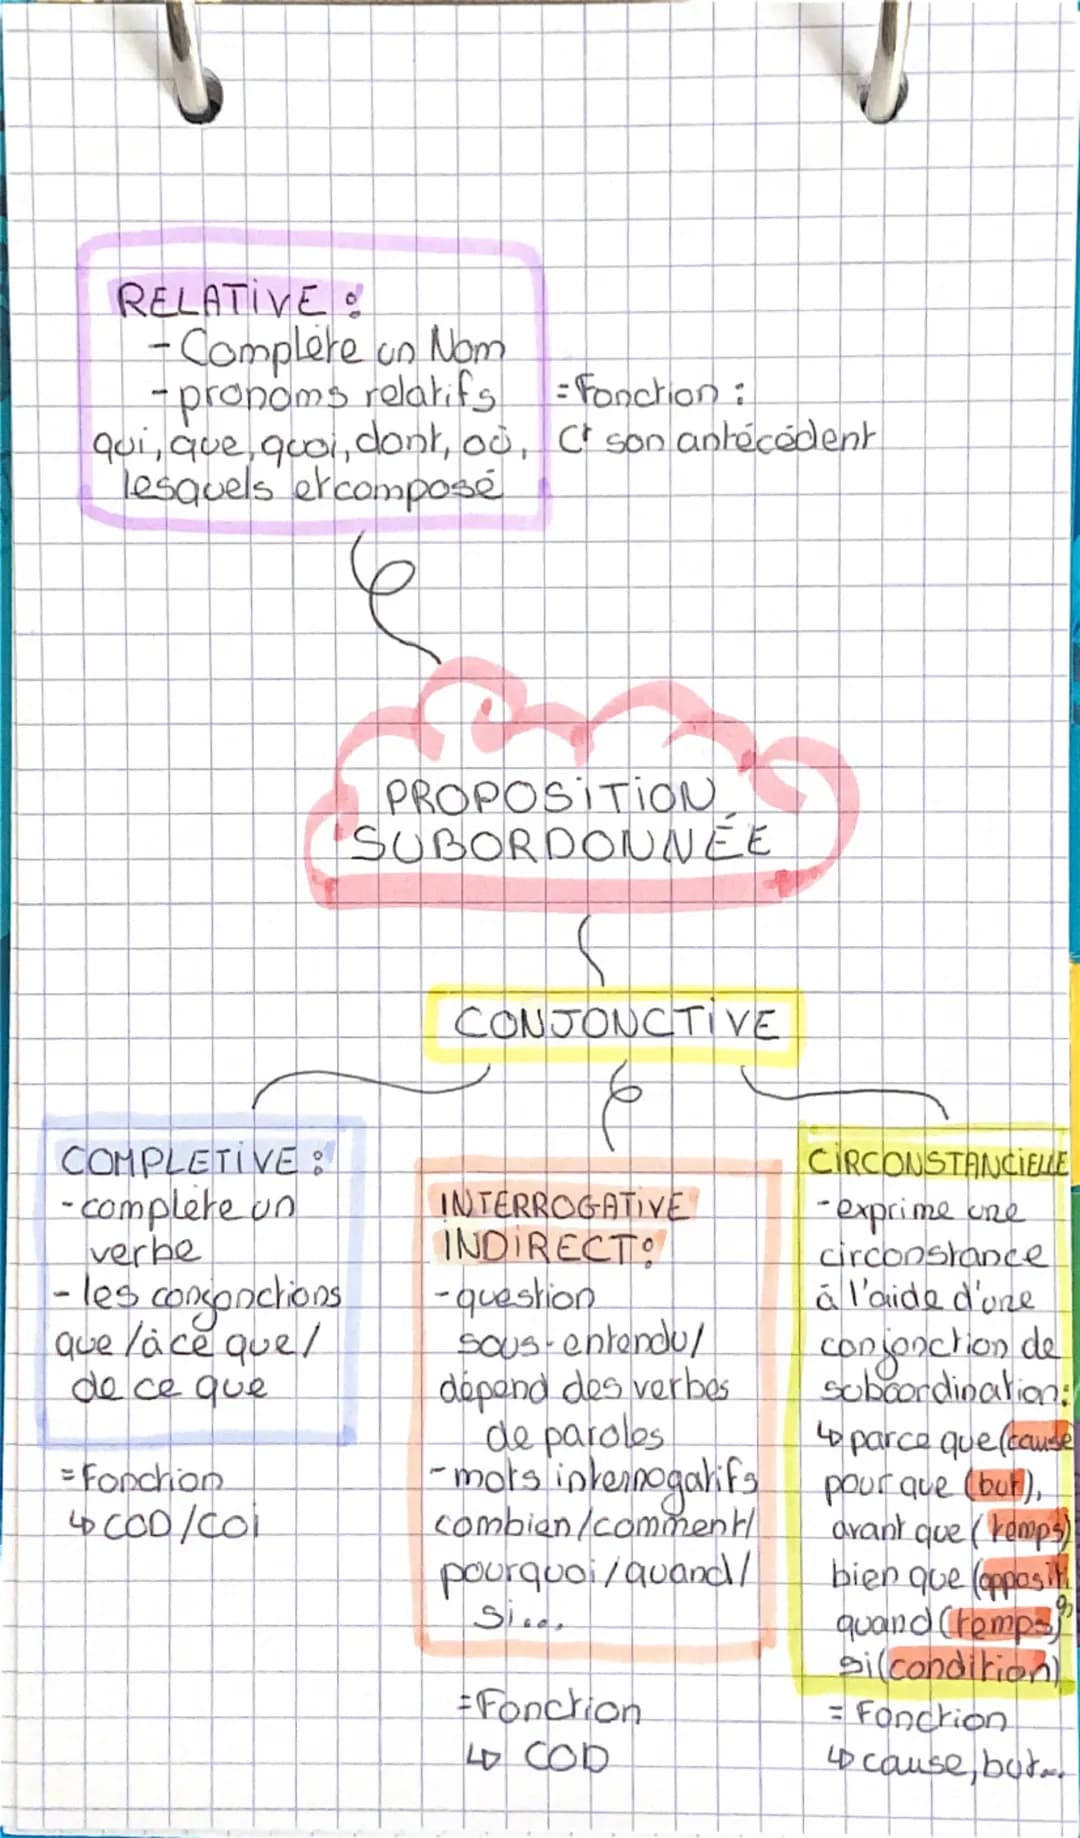 RELATIVE :
- Complète un Nom
- pronoms relatifs
qui, que, quoi, dont, où,
lesquels et composé
= Fonction :
Ct son antécédent
PROPOSITION
SUBORDONNÉE
CONJONCTIVE
COMPLETIVE :
- complète un
verbe
- les conjonctions
que /à ce que/
de ce que
= Fonction
↳ COD/COI
INTERROGATIVE
INDIRECT :
- question
sous-entendu/
dépend des verbes
de paroles
- mots interrogatifs
combien/comment/
pourquoi/quand/
si...
= Fonction
↳ COD
CIRCONSTANCIELLE
- exprime une
circonstance
à l'aide d'une
conjonction de
subcordination:
↳ parce que (cause
pour que (but),
avant que (temps)
bien que (oppositi
quand (temps),
si (condition)
= Fonction
↳ cause, but...